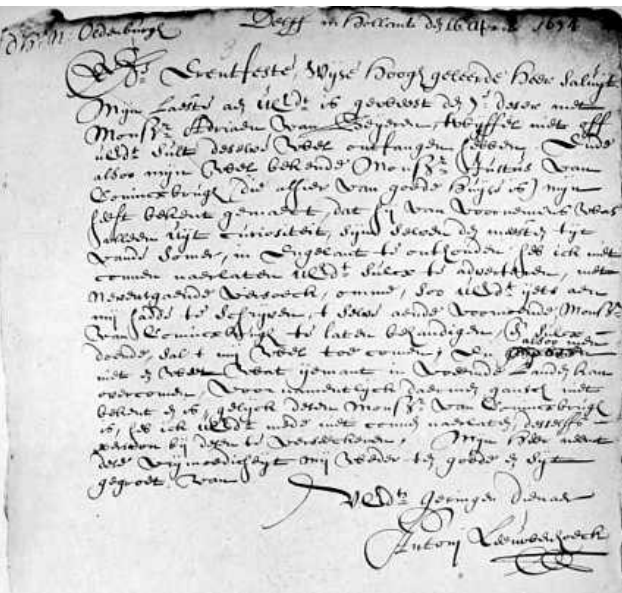 Dhr. N. Oldenburgh
Delff in Hollant den 16 April 1674
Erentfeste Wijse Hoogh geleerde Heer Saluijt
Mijn Laeste aen UEdt. is geweest den 7e. deser met
Monsr. Adriaen van Beijeren, twijffel niet off
UEdt. sult deselve wel ontfangen hebben, Ende
alsoo mijn wel bekende Monsr. Justus van
Coninxbrugh (die alhier van goede huijse is) mijn
heeft bekent gemaeckt, dat hij van voornemens was
alleen uijt curiositeit, sijn selven den meesten tijt
vande somer, in Engelant te onthouden, heb ick niet
connen naerlaten UEdt. sulcx te adverteren, met
nevensgaende versoeck, omme, soo UEdt. iets aen
mij hadde te schrijven, t selve aende voornoemde Monsr.
van Coninxbrugh te laten behandigen,
doende, sal t mij wel toe comen, alsoo men
niet en weet wat ijemant in vreemde Landen kan
overcomen, voornamentlijck daermen gantsch niet
bekent en is, gelijck desen Monsr. van Coninxbrugh
is, heb ick UEdt. mede niet connen naerlaten, desselffs
persoon bij desen te versekeren, Mijn Heer neemt
dese vrijmoedicheijt mij weder ten goede en sijt
gegroet van
UEdts. Geringen dienaer
Antonj Leeuwenhoeck